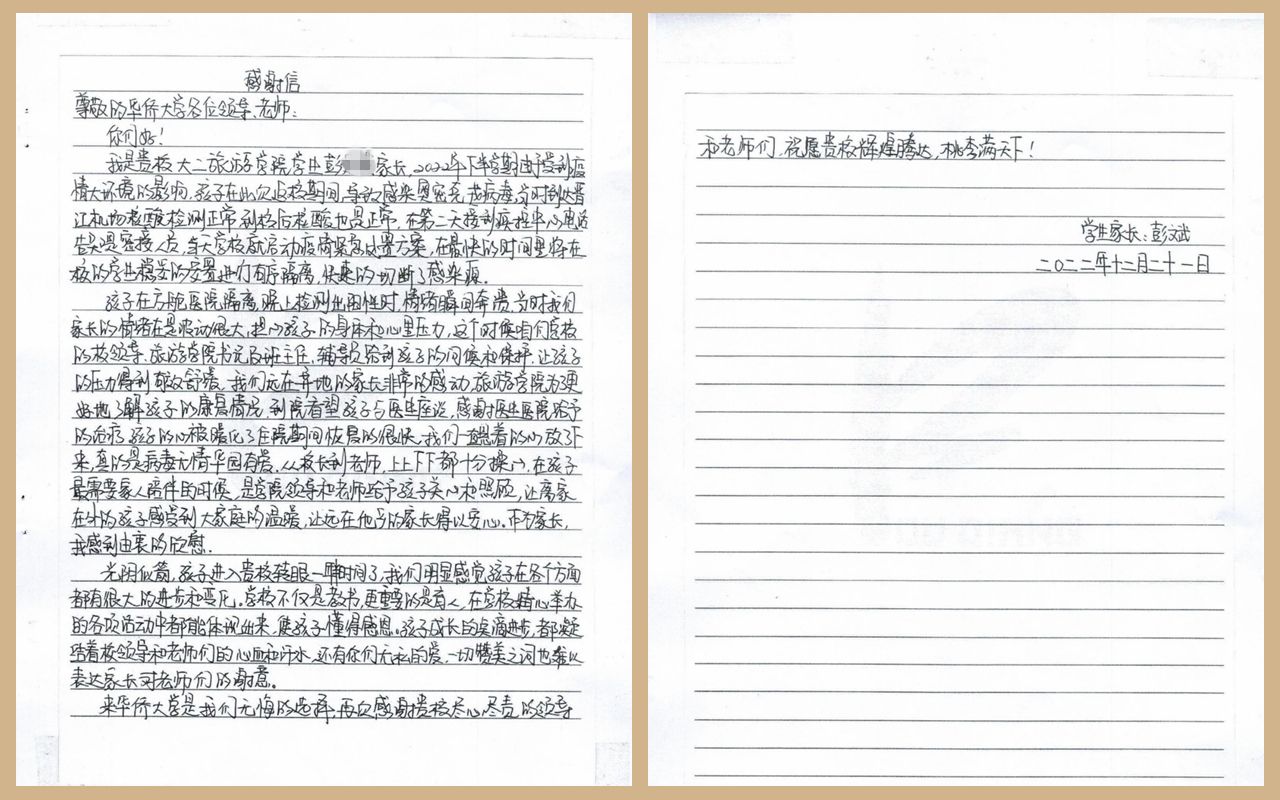 感谢信
尊敬的华侨大学各位领导、老师:
你们好!
我是贵校大二旅游学院学生彭 家长,2022年下半学期由于受到疫
情大环境的影响,孩子在此次返校期间,导致感染奥密克戎病毒,当时到达晋
江机场核酸检测正常,到校后核酸也是正常,在第二天接到疾控中心电话
告知是密接人员,当天学校就启动疫情紧急处置方案,在最快的时间里将在
校的学生稳妥的安置进行有序隔离,快速的切断了感染源.
孩子在方舱医院隔离,晚上检测出阳性时,情绪瞬间奔溃,当时我们
家长的情绪在是波动很大,担心孩子的身体和心里压力,这个时候咱们学校
的校领导、旅游学院书记及班主任,辅导员给到孩子的问候和保护,让孩子
的压力得到有效舒缓,我们远在异地的家长非常的感动,旅游学院为了更
好地了解孩子的康复情况,到院看望孩子与医生座谈,感谢医生医院给予
的治疗,孩子的心被暖化了住院期间恢复的很快,我们一直悬着的心放了下
来,真的是病毒无情华园有爱,从校长到老师,上上下下都十分操心,在孩子
最需要家人陪伴的时候,是学院领导和老师给予孩子关心和照顾,让离家
在外的孩子感受到大家庭的温暖,让远在他乡的家长得以安心.作为家长,
我感到由衷的欣慰.
光阴似箭,孩子进入贵校转眼一 时间了,我们明显感觉孩子在各个方面
都有很大的进步和变化。学校不仅是教书,更重要的是育人,在学校精心举办
的各项活动中都有能体现出来,使孩子懂得感恩。孩子成长的点滴进步,都凝
结着校领导和老师们的心血和汗水,还有你们无私的爱,一切赞美之词也难以
表达家长对老师们的谢意。
来华侨大学是我们无悔的选择,再次感谢贵校尽心尽责的领导
和老师们,祝愿贵校辉煌腾达,桃李满天下!
学生家长:彭文斌
二〇二二年十二月二十一日